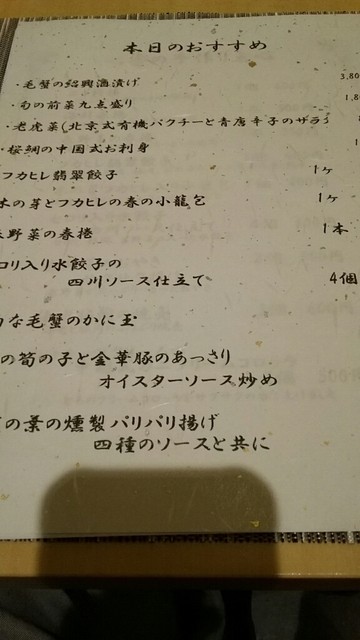 本日のおすすめ
・毛蟹の紹興酒漬け 3,80
・旬の前菜九点盛り 1,8
・老虎菜(北京式有機パクチーと青唐辛子のサラダ
・桜鯛の中国式お刺身 1
フカヒレ翡翠餃子 1ヶ
木の芽とフカヒレの春の小籠包 1ヶ
野菜の春捲 1本
コリ入り水餃子の
四川ソース仕立て 4個
な毛蟹のかに玉
の筍の子と金華豚のあっさり
オイスターソース炒め
の葉の燻製パリパリ揚げ
四種のソースと共に